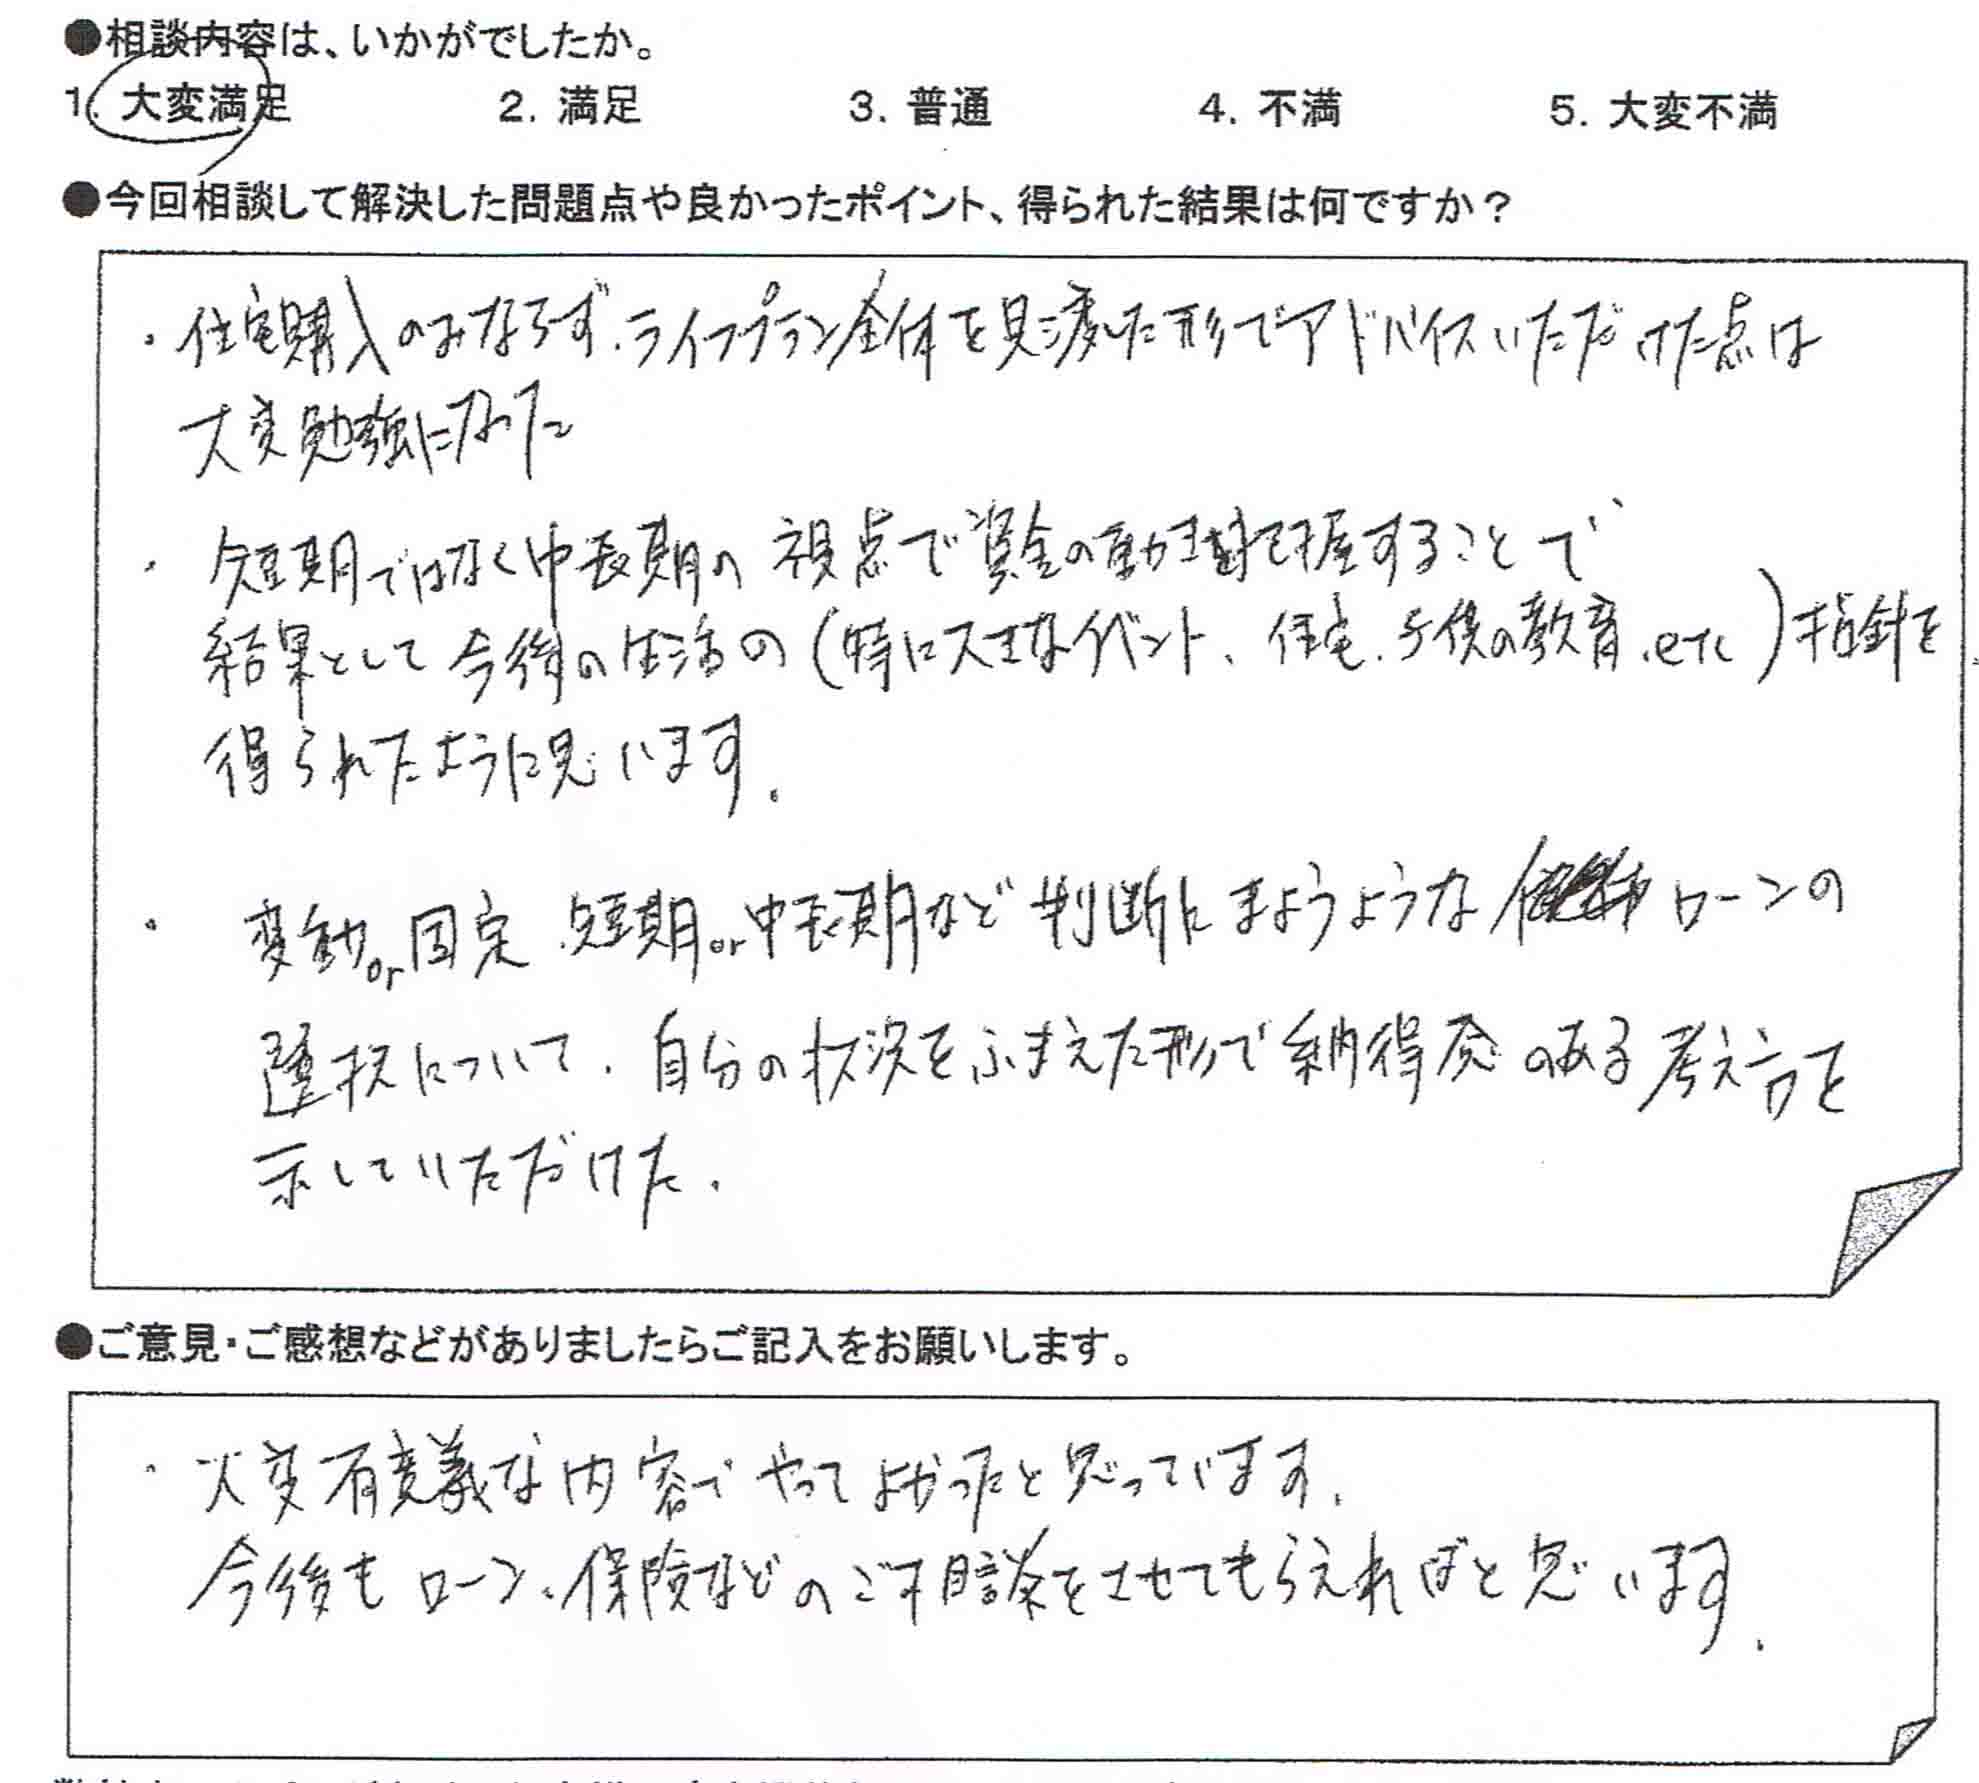 ●相談内容は、いかがでしたか。
1. 大変満足 2. 満足 3. 普通 4. 不満 5. 大変不満
●今回相談して解決した問題点や良かったポイント、得られた結果は何ですか？
・住宅購入のみならず、ライフプラン全体を見渡した形でアドバイスいただけた点は
大変勉強になった
・短期ではなく中長期の視点で資金の動きを把握することで
結果として今後の生活の(特に大きなイベント、住宅、子供の教育、etc)指針を
得られたように思います。
・変動or固定 短期or中長期など判断にまようような ローンの
選択について、自分の状況をふまえた形で納得感のある考え方を
示していただけた。
●ご意見・ご感想などがありましたらご記入をお願いします。
・大変有意義な内容でやってよかったと思っています。
今後もローン、保険などのご相談をさせてもらえればと思います。